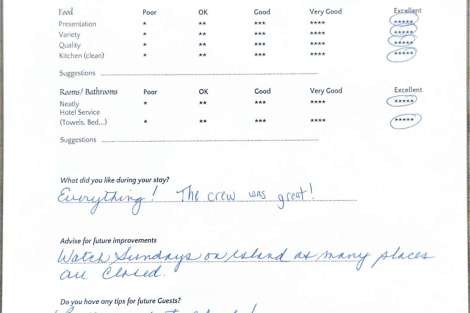 Food Poor OK Good Very Good Excellent
Presentation * ** *** **** *****
Variety * ** *** **** *****
Quality * ** *** **** *****
Kitchen (clean) * ** *** **** *****
Suggestions
Rooms/ Bathrooms Poor OK Good Very Good Excellent
Neatly * ** *** **** *****
Hotel Service
(Towels, Bed...) * ** *** **** *****
Suggestions
What did you like during your stay?
Everything! The crew was great!
Advise for future improvements
Watch Sundays on island as many places
are closed.
Do you have any tips for future Guests?